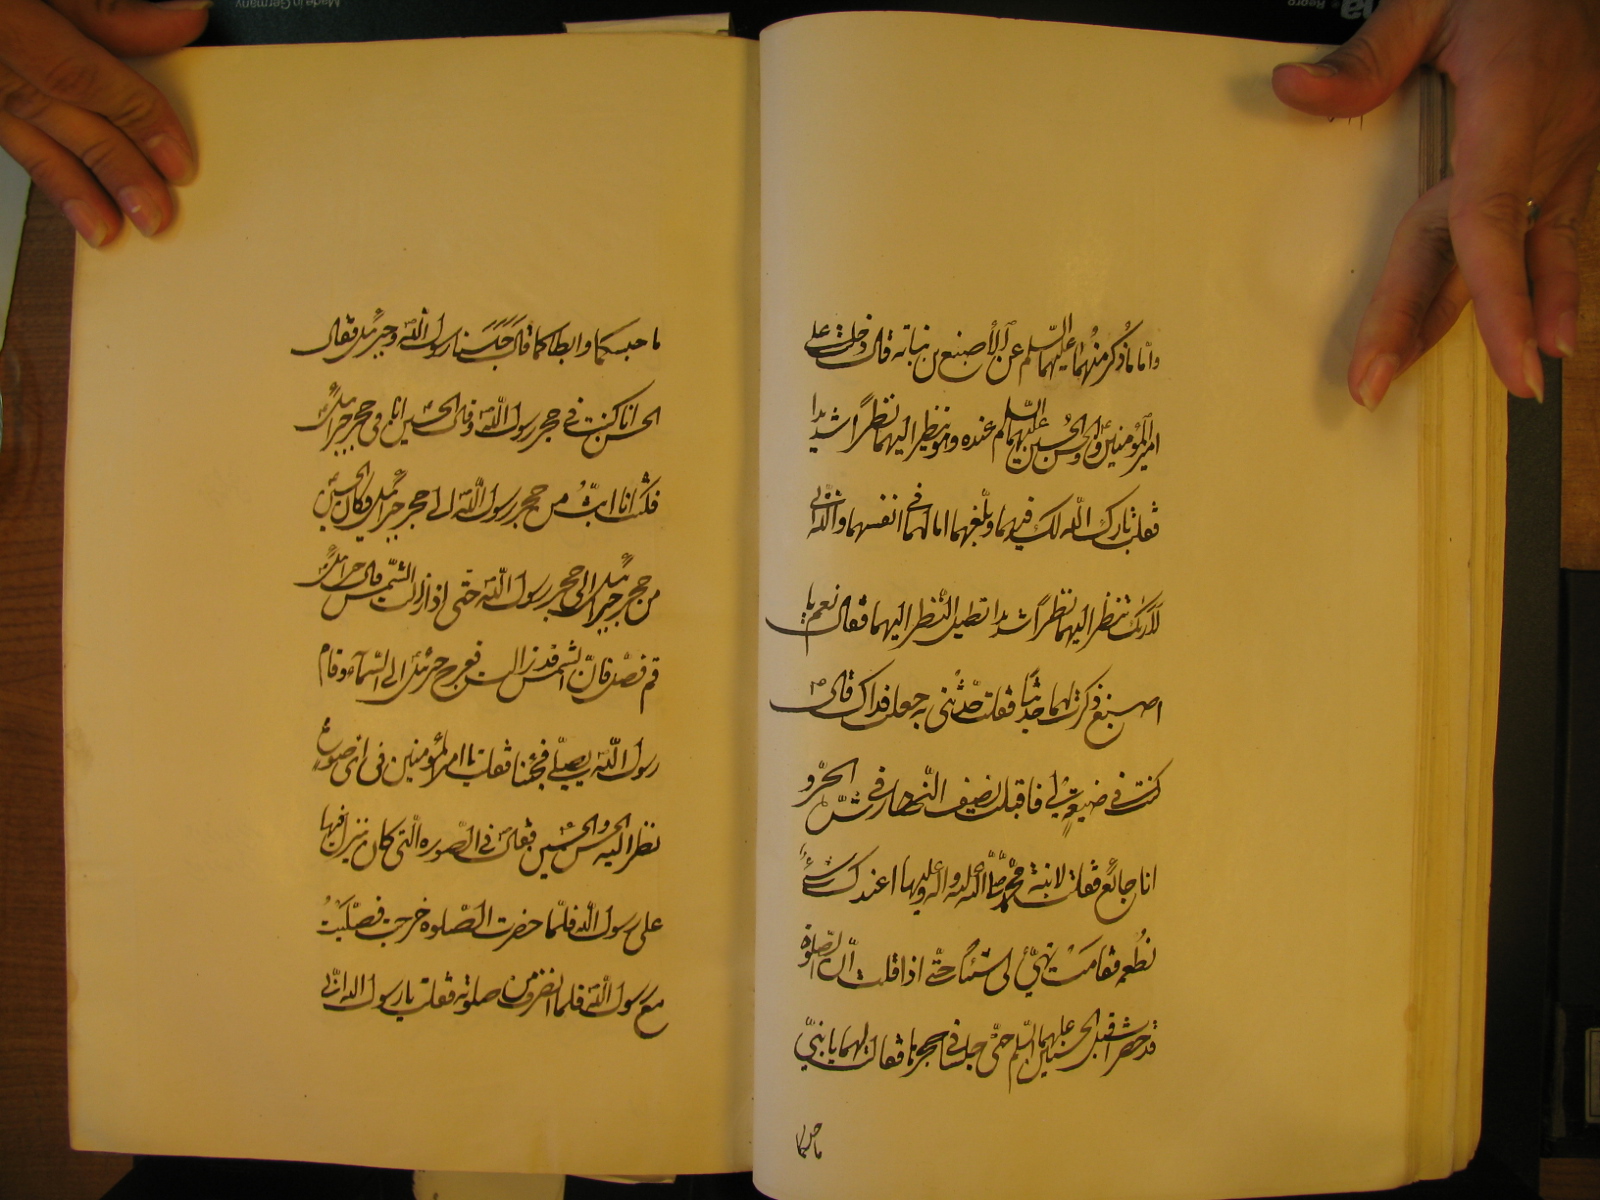 واما ما ذكر منهما عليهما السلم عن الاصبغ بن نباته قال دخلت على
امير المؤمنين والحسن والحسين عليهما السلم عنده وهو ينظر اليهما نظرًا شديدا
فقلت بارك الله لك فيهما وبلغهما امالهما في انفسهما والله اني
لاراك تنظر اليهما نظرًا شديدا تطيل النظر اليهما فقال نعم يا
اصبغ ذكرت لهما حديثا فقلت حدثني به جعلت فداك قال
كنت في ضيعة لي فاقبلت نصف النهار في شدّة الحرّ و
انا جائع فقلت لابنة محمد صلى الله عليه واله وعليها اعندك شئ
نطعمه فقامت تهيّئ لي شيئًا حتى اذا قلت ان الصلوة
قد حضرت اقبل الحسن والحسين عليهما السلم حتى جلسا في حجرها فقالت لهما يا بنيّ
ما حبسكما
ما حبسكما وابطاكما قالا حبسنا رسول الله وجبرئيل فقال
الحسن انا كنت في حجر رسول الله وقال الحسين انا في حجر جبرائيل
فكنت انا اثب من حجر رسول الله الى حجر جبرائيل وكان الحسين يثب
من حجر جبرائيل الى حجر رسول الله حتى اذا زالت الشمس قال جبرائيل
قم فصل فان الشمس قد زالت فعرج جبرئيل الى السمآء وقام
رسول الله يصلي فجئنا فقلت يا امير المؤمنين في اي صورة
نظر اليه الحسن والحسين فقال في الصورة التي كان ينزل فيها
على رسول الله فلما حضرت الصلوة خرجت فصليت
مع رسول الله فلما انصرف من صلوته فقلت يا رسول الله اني
Made in Germany
Repro